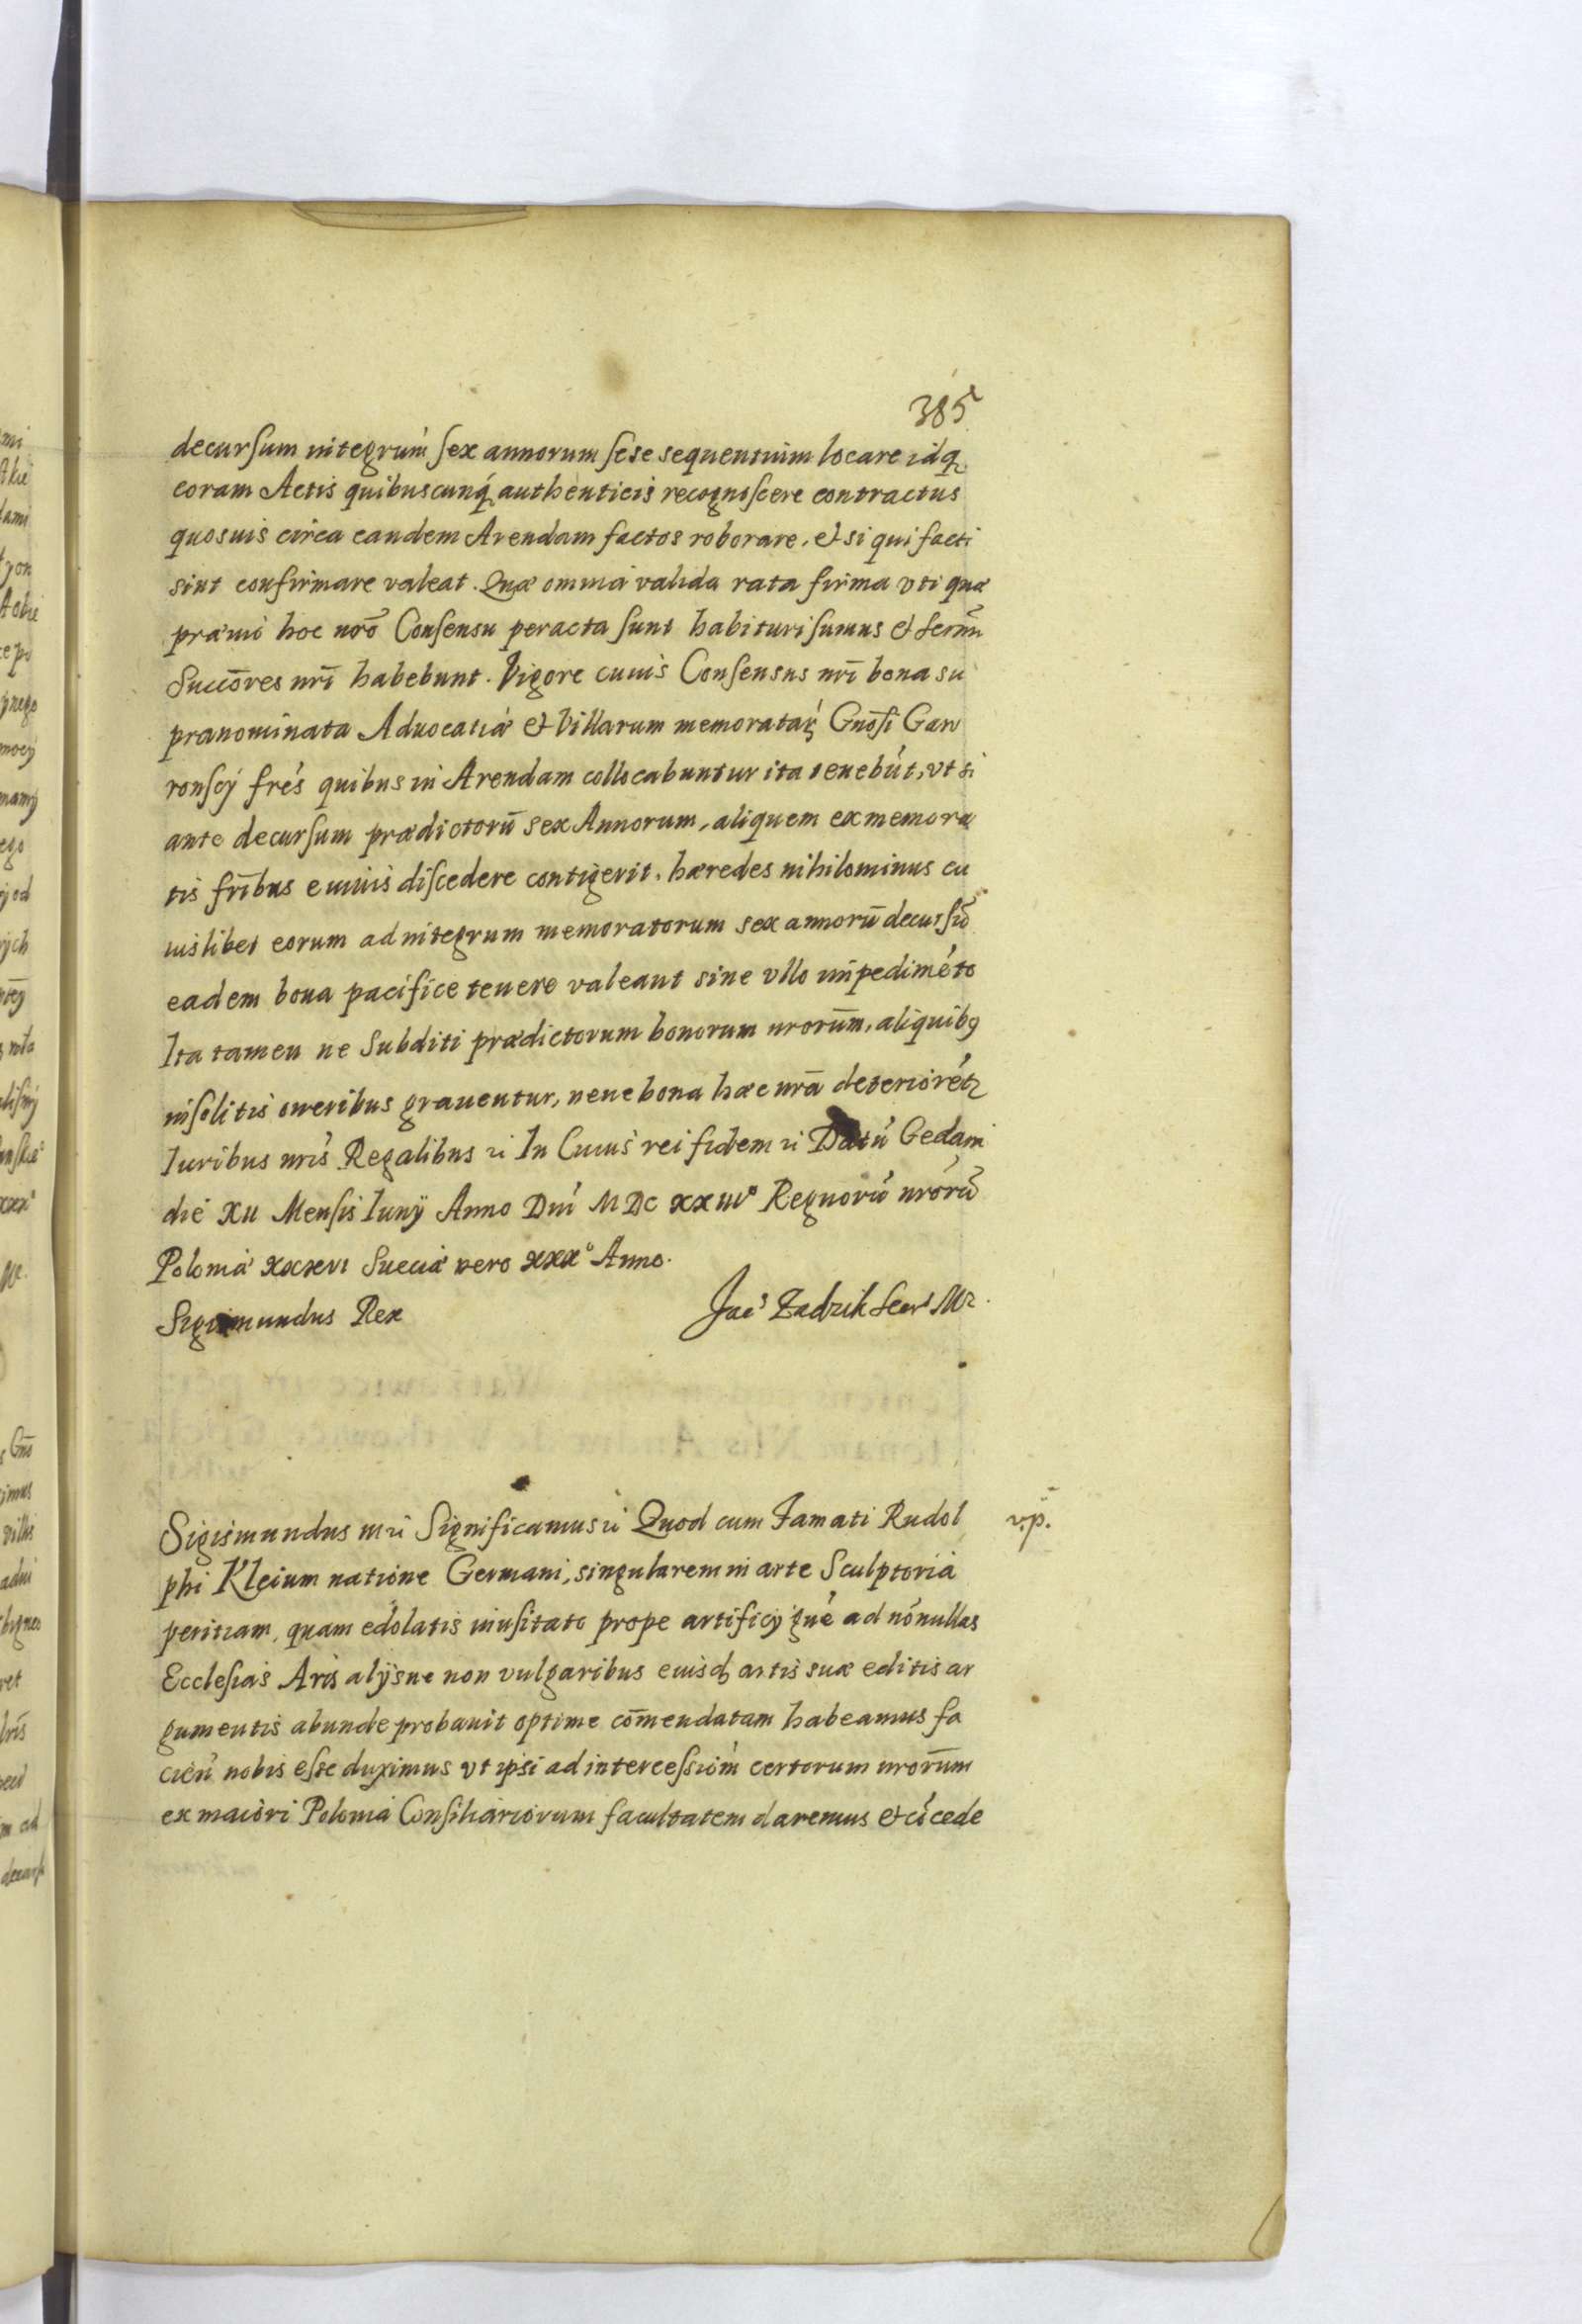 385
decursum integrum sex annorum sese sequentium locare idq
coram Actis quibuscunq authenticis recognoscere contractus
quosuis circa eandem Arendam factos roborare, et si qui facti
sint confirmare valeat. Quæ omnia valida rata firma vti quæ
præuio hoc nrõ Consensu peracta sunt habituri sumus et Serñi
Succõres nrĩ habebunt. Vigore cuius Consensus nrĩ bona su
pranominata Advocatiæ et Villarum memoratar Gnõsi Gaw
ronscÿ fres quibus in Arendam collocabuntur ita tenebút, vt si
ante decursum prædictorũ sex Annorum, aliquem ex memora
tis frĩbus e viuis discedere contigerit, hæredes nihilominus cu
iuslibet eorum ad integrum memoratorum sex annorũ decursũ
eadem bona pacifice tenere valeant sine vllo impediméto
Ita tamen ne Subditi prædictorum bonorum nrorũm, aliquibꝯ
insolitis oneribus grauentur, neue bona hæc nrã deteriorétr
Iuribus nris Regalibus ꝛc In Cuius rei fidem ꝛc Datú Gedani
die XII Mensis Iunÿ Anno Dni MDC XXIIIº Regnorú nrórũ
Poloniæ XXXVI Sueciæ vero XXXº Anno.
Sigismundus Rex Jac Zadzik Secr Mr.
v.p.
Sigismundus III ꝛc Significamus ꝛc Quod cum Famati Rudol
phi Kleium natione Germani, singularem in arte Sculptoria
peritiam, quam edolatis inusitato prope artificÿ gne ad nónullas
Ecclesias Aris alÿsue non vulgaribus eiusd artis suæ editis ar
gumentis abunde probauit optime cõmendatam habeamus fa
ciem nobis esse duximus vt ipsi ad intercessiom certorum nrorũm
ex maiori Polonia Consiliariorum facultatem daremus et cócede